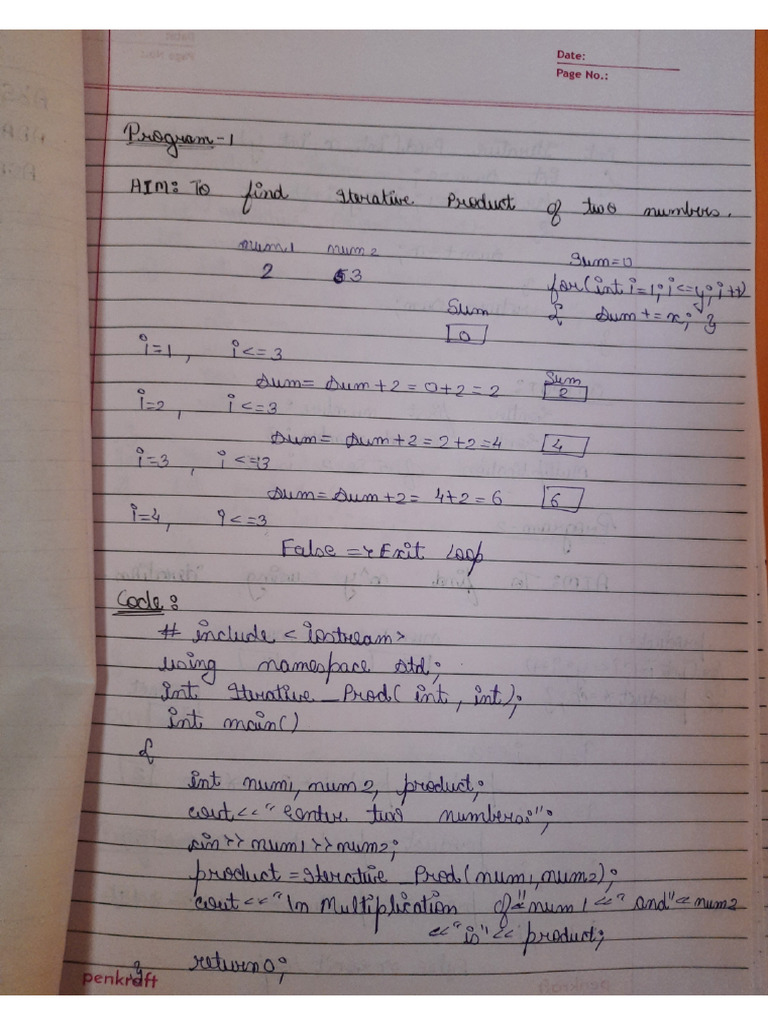 Date:
Page No.:
Program-1
AIM: To find Iterative Product of two numbers.
num1 num2 Sum=0
2 3 for(int i=1; i<=y; i++)
Sum { sum+=x; }
0
i=1, i<=3
Sum= Sum+2=0+2=2 Sum 2
i=2, i<=3
Sum= Sum+2=2+2=4 4
i=3, i<=3
Sum=Sum+2= 4+2=6 6
i=4, 4<=3
False => Exit Loop
Code:
# include <iostream>
using namespace std;
int Iterative_Prod( int, int);
int main()
{
int num1, num2, product;
cout<<"Enter two numbers:";
cin>>num1>>num2;
product=Iterative_Prod(num1,num2);
cout<<"\n Multiplication of"<<num1<<" and"<<num2
<<"is"<< product;
return 0;
}
penkraft